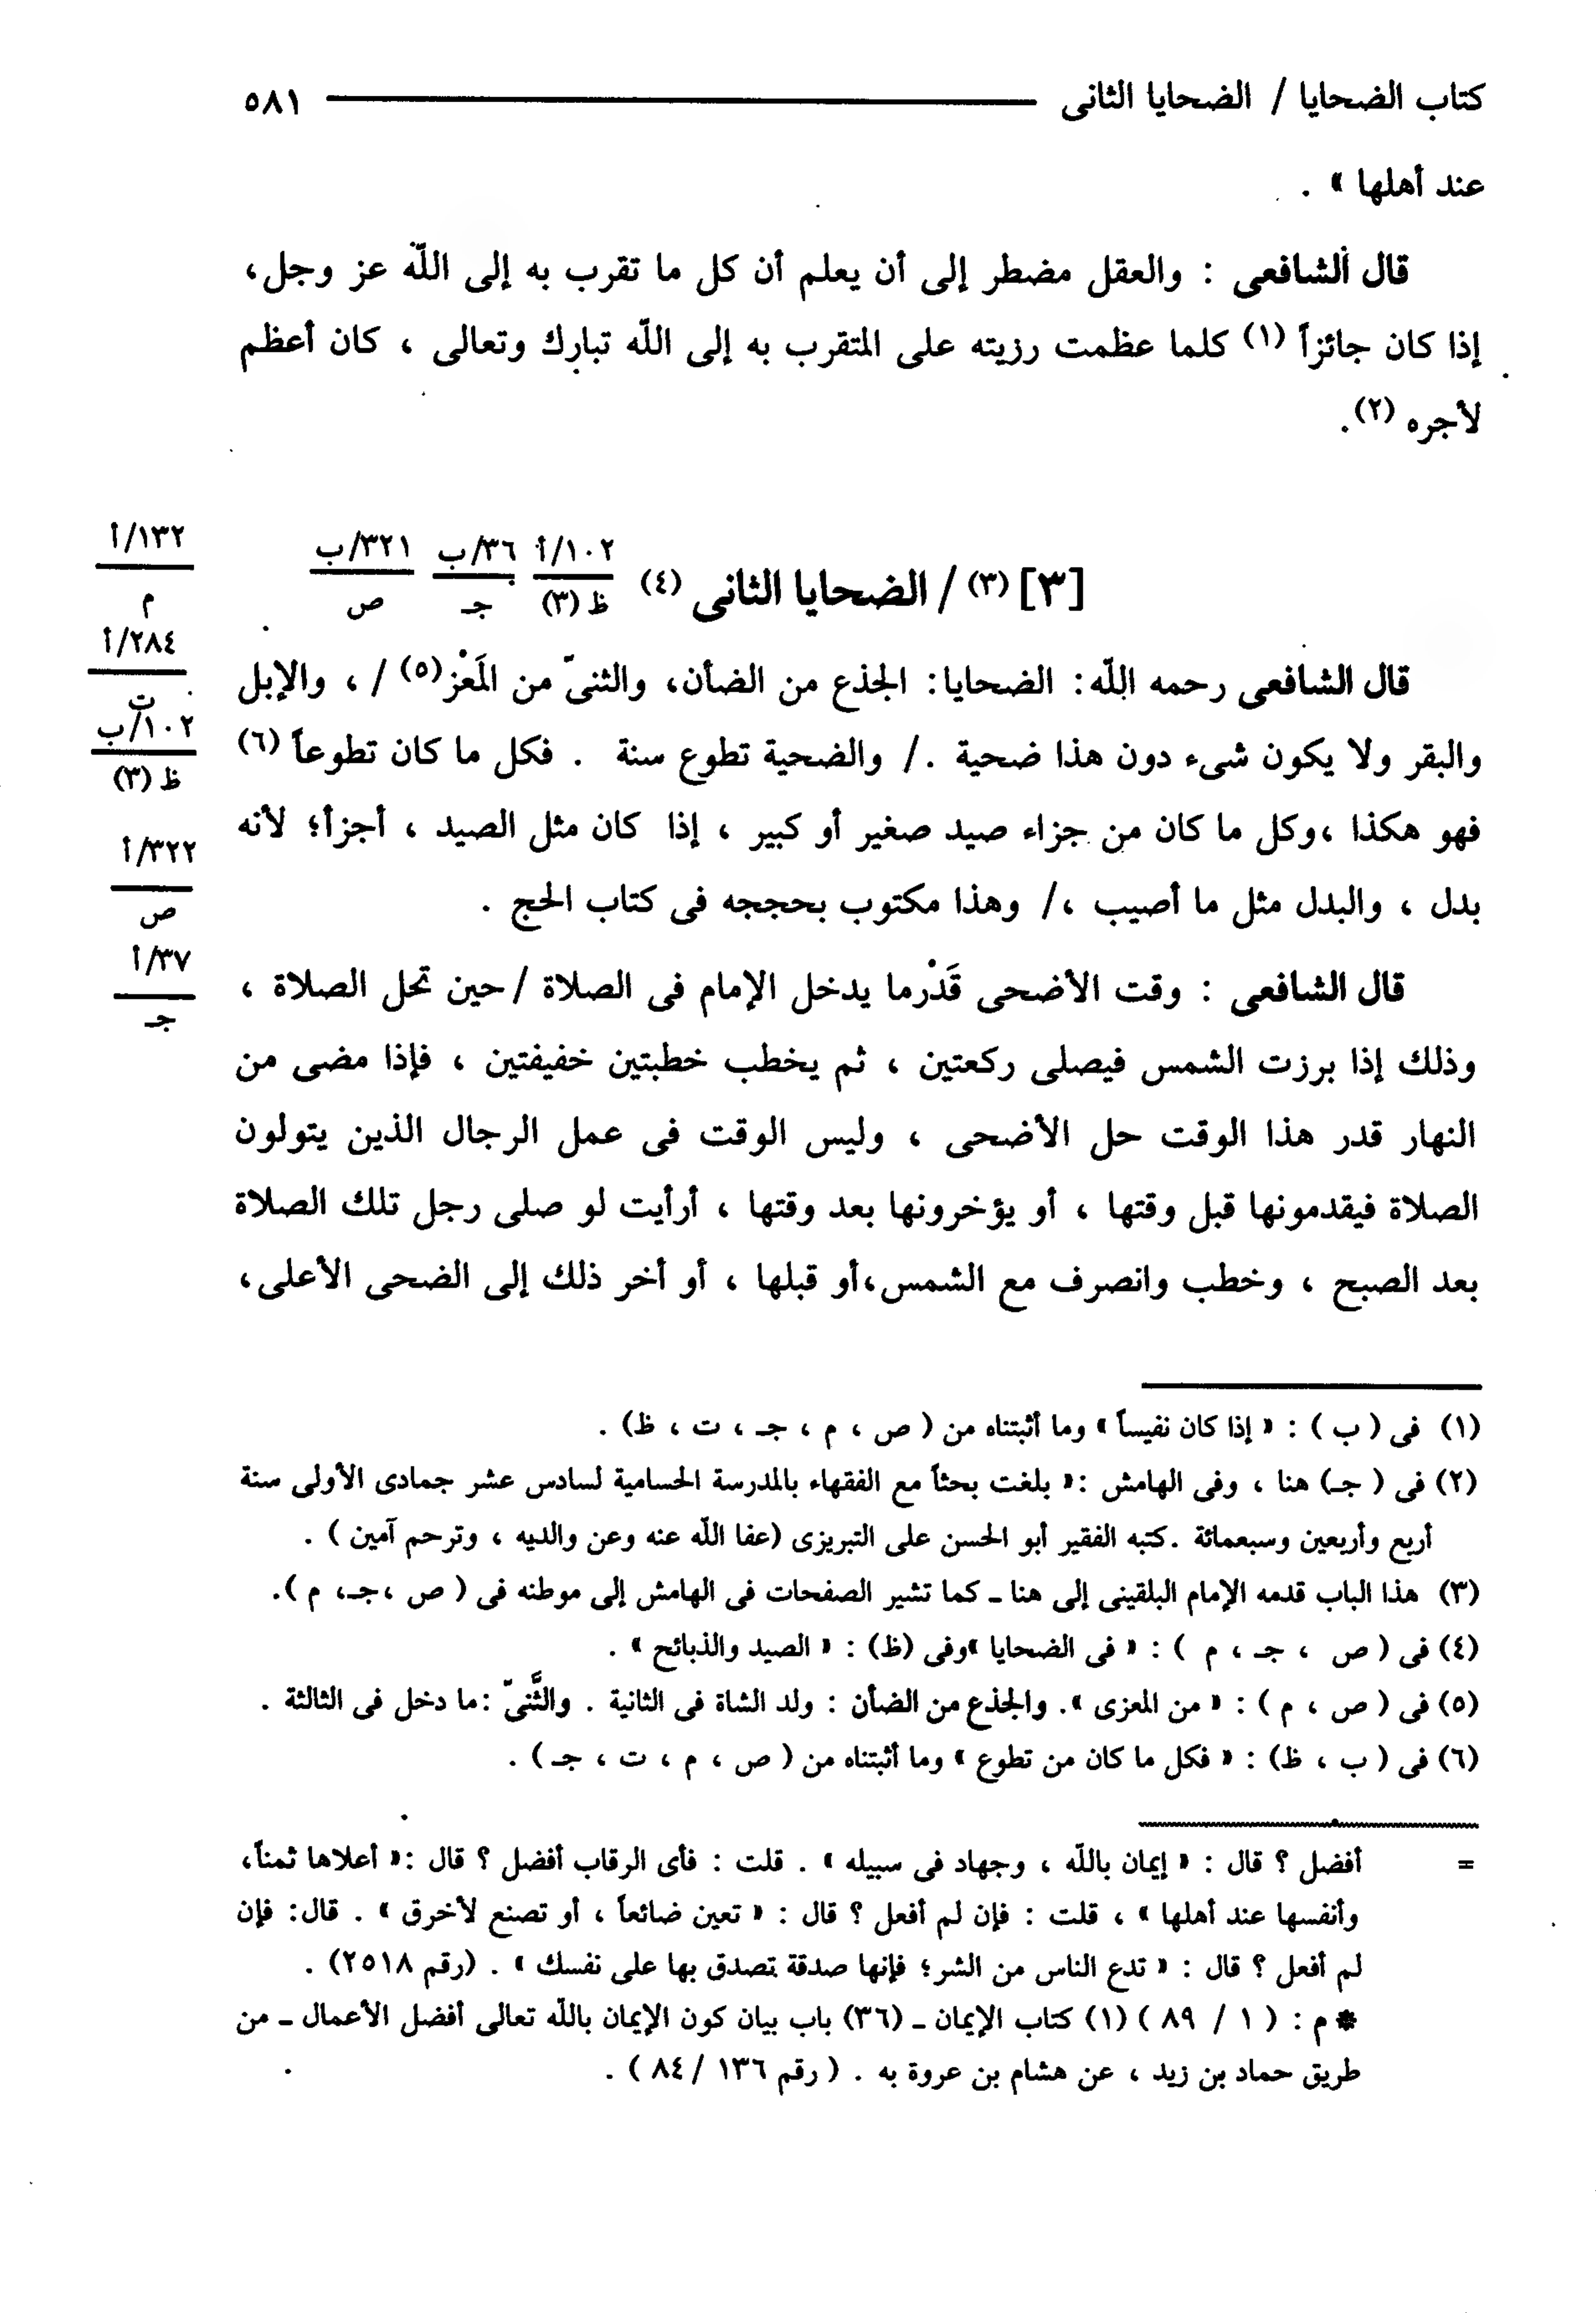 كتاب الضحايا / الضحايا الثانى ٥٨١
عند أهلها » .
قال الشافعى : والعقل مضطر إلى أن يعلم أن كل ما تقرب به إلى اللّه عز وجل،
إذا كان جائزاً (١) كلما عظمت رزيته على المتقرب به إلى اللّه تبارك وتعالى ، كان أعظم
لأجره (٢).
[٣] (٣) / الضحايا الثانى (٤)
١٠٢/أ
ظ (٣)
٣٦/ب
جـ
٣٢١/ب
ص
١٣٢/أ
م
٢٨٤/أ
ت
١٠٢/ب
ظ (٣)
٣٢٢/أ
ص
٣٧/أ
جـ
قال الشافعى رحمه اللّه: الضحايا: الجذع من الضأن، والثنىّ من المَعْز(٥) / ، والإبل
والبقر ولا يكون شىء دون هذا ضحية ./ والضحية تطوع سنة . فكل ما كان تطوعاً (٦)
فهو هكذا ،وكل ما كان من جزاء صيد صغير أو كبير ، إذا كان مثل الصيد ، أجزأ؛ لأنه
بدل ، والبدل مثل ما أصيب ،/ وهذا مكتوب بحججه فى كتاب الحج .
قال الشافعى : وقت الأضحى قَدْرما يدخل الإمام فى الصلاة /حين تحل الصلاة ،
وذلك إذا برزت الشمس فيصلى ركعتين ، ثم يخطب خطبتين خفيفتين ، فإذا مضى من
النهار قدر هذا الوقت حل الأضحى ، وليس الوقت فى عمل الرجال الذين يتولون
الصلاة فيقدمونها قبل وقتها ، أو يؤخرونها بعد وقتها ، أرأيت لو صلى رجل تلك الصلاة
بعد الصبح ، وخطب وانصرف مع الشمس،أو قبلها ، أو أخر ذلك إلى الضحى الأعلى،
(١) فى ( ب ) : « إذا كان نفيساً » وما أثبتناه من ( ص ، م ، جـ ، ت ، ظ) .
(٢) فى ( جـ) هنا ، وفى الهامش :« بلغت بحثاً مع الفقهاء بالمدرسة الحسامية لسادس عشر جمادى الأولى سنة
أربع وأربعين وسبعمائة .كتبه الفقير أبو الحسن على التبريزى (عفا اللّه عنه وعن والديه ، وترحم آمين ) .
(٣) هذا الباب قدمه الإمام البلقينى إلى هنا ـ كما تشير الصفحات فى الهامش إلى موطنه فى ( ص ،جـ، م ).
(٤) فى ( ص ، جـ ، م ) : « فى الضحايا »وفى (ظ) : « الصيد والذبائح » .
(٥) فى ( ص ، م ) : « من المعزى ». والجذع من الضأن : ولد الشاة فى الثانية . والثَّنىّ :ما دخل فى الثالثة .
(٦) فى ( ب ، ظ) : « فكل ما كان من تطوع » وما أثبتناه من ( ص ، م ، ت ، جـ ) .
= أفضل ؟ قال : « إيمان باللّه ، وجهاد فى سبيله » . قلت : فأى الرقاب أفضل ؟ قال :« أعلاها ثمناً،
وأنفسها عند أهلها » ، قلت : فإن لم أفعل ؟ قال : « تعين ضائعاً ، أو تصنع لأخرق » . قال: فإن
لم أفعل ؟ قال : « تدع الناس من الشر؛ فإنها صدقة تصدق بها على نفسك » . (رقم ٢٥١٨) .
* م : ( ١ / ٨٩ ) (١) كتاب الإيمان ـ (٣٦) باب بيان كون الإيمان باللّه تعالى أفضل الأعمال ـ من
طريق حماد بن زيد ، عن هشام بن عروة به . ( رقم ١٣٦ / ٨٤ ) .